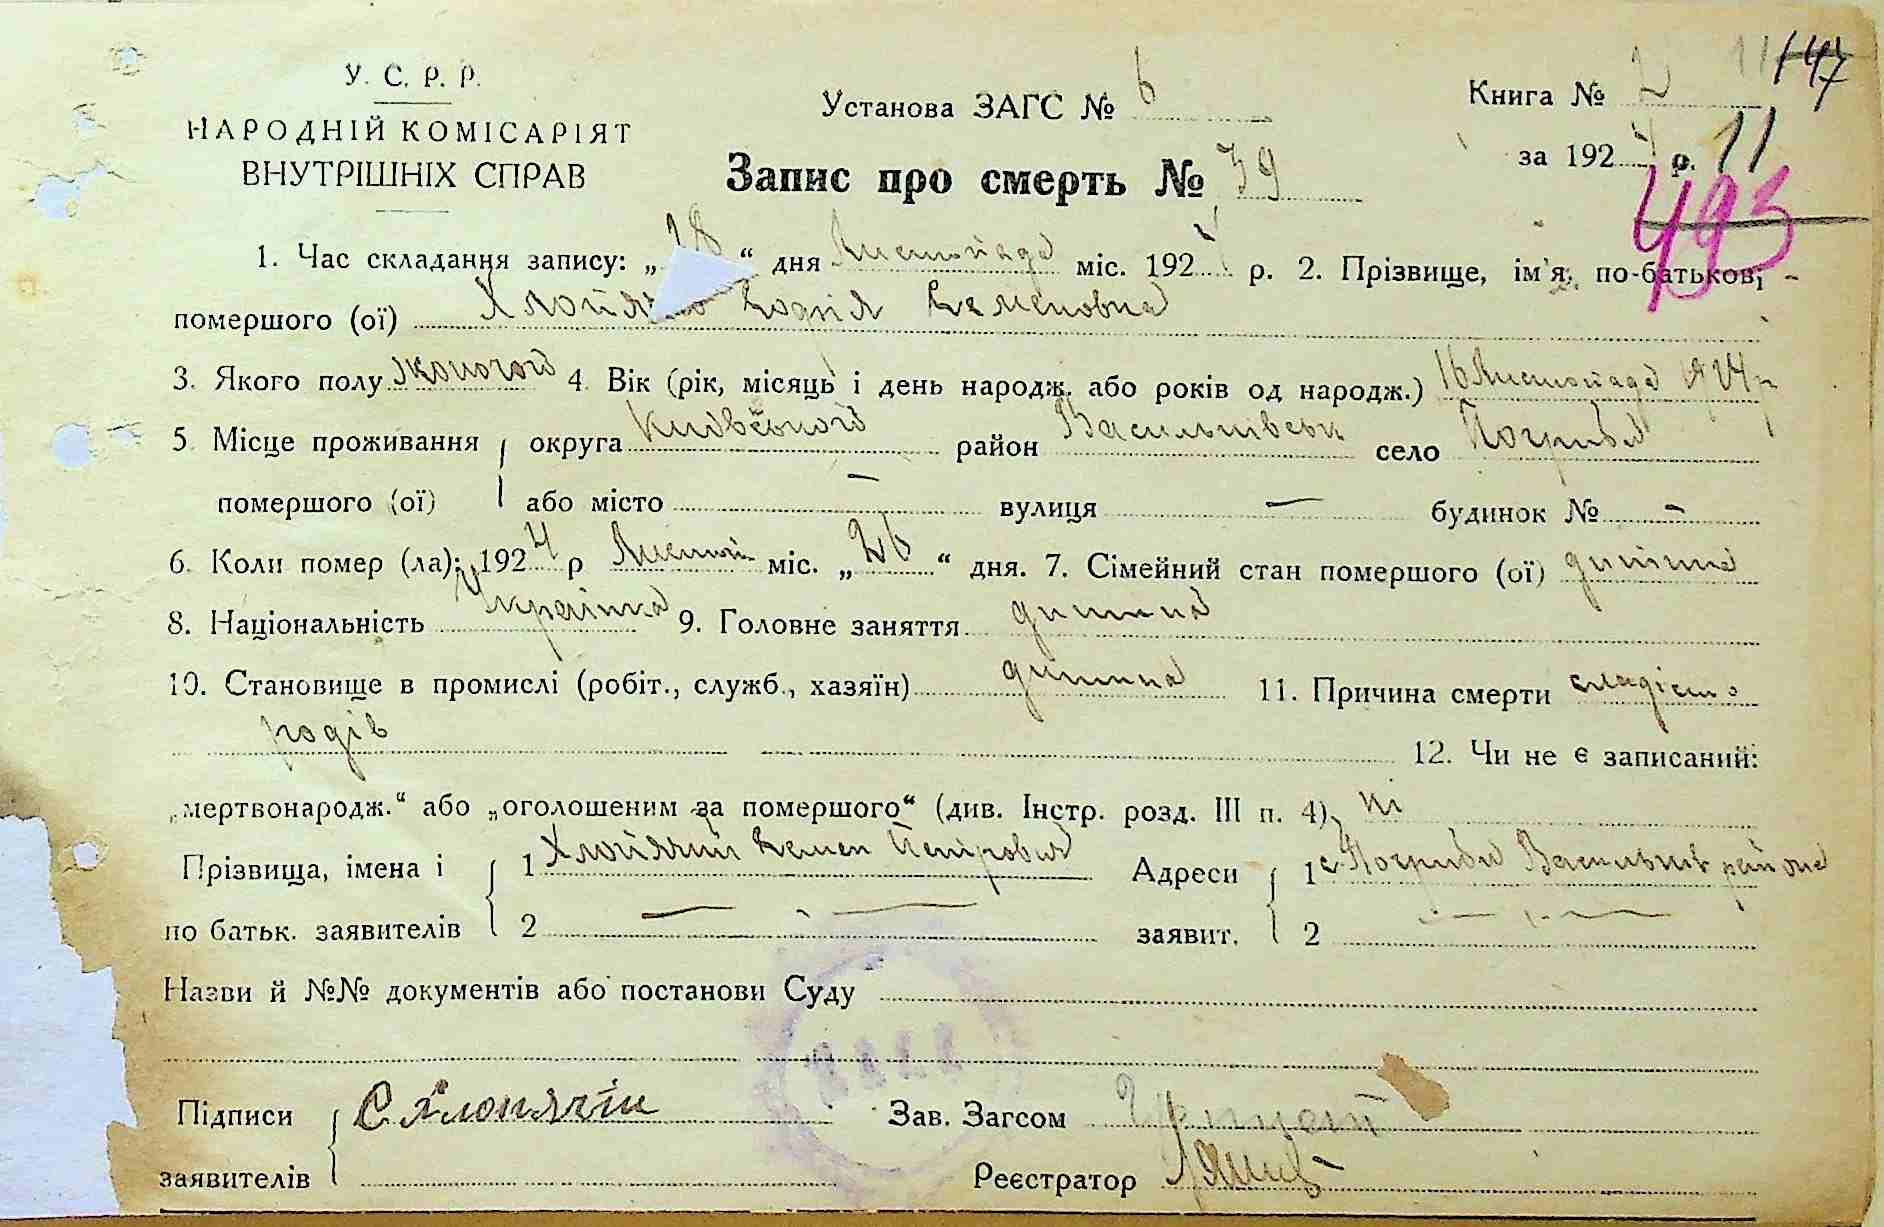 147
У. С. Р. Р.
НАРОДНІЙ КОМІСАРІЯТ
ВНУТРІШНІХ СПРАВ
Установа ЗАГС № 6
Книга № 2
за 1924 р. 11
493
Запис про смерть № 39
1. Час складання запису: „28“ дня Листопада міс. 1924 р. 2. Прізвище, ім'я, по-батькові
помершого (ої) Софія Семеновна
3. Якого полу жоночого 4. Вік (рік, місяць і день народж. або років од народж.) 16 Листопада 1924 р
5. Місце проживання округа Київського район Васильківськ село Погриби
помершого (ої) або місто — вулиця — будинок № -
6. Коли помер (ла): 1924 р Листоп міс. „26“ дня. 7. Сімейний стан помершого (ої) дитина
8. Національність Українка 9. Головне заняття дитина
10. Становище в промислі (робіт., служб., хазяїн) дитина 11. Причина смерти слабість
родів
12. Чи не є записаний:
„мертвонародж.“ або „оголошеним за помершого“ (див. Інстр. розд. III п. 4) ні
Прізвища, імена і 1 Хлопячий Семен Петрович Адреси 1 с. Погриби Васильків района
по батьк. заявителів 2 — — заявит. 2 — —
Назви й №№ документів або постанови Суду
Підписи С Хлопячий Зав. Загсом
заявителів Реєстратор